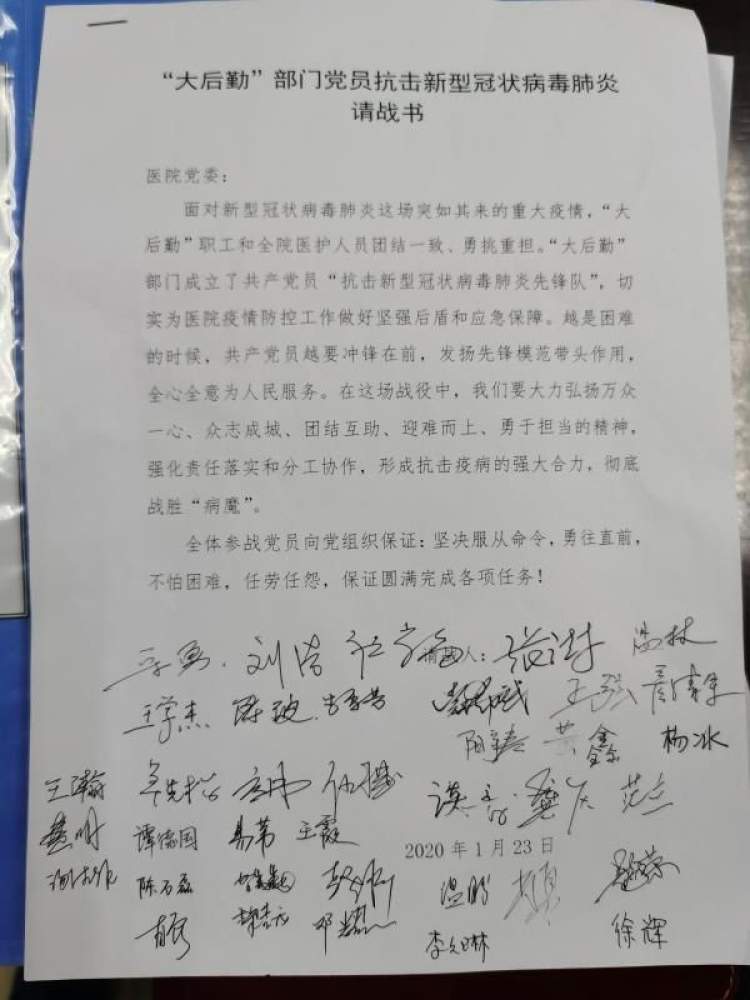 “大后勤”部门党员抗击新型冠状病毒肺炎
请战书
医院党委：
面对新型冠状病毒肺炎这场突如其来的重大疫情，“大
后勤”职工和全院医护人员团结一致、勇挑重担。“大后勤”
部门成立了共产党员“抗击新型冠状病毒肺炎先锋队”，切
实为医院疫情防控工作做好坚强后盾和应急保障。越是困难
的时候，共产党员越要冲锋在前，发扬先锋模范带头作用，
全心全意为人民服务。在这场战役中，我们要大力弘扬万众
一心、众志成城、团结互助、迎难而上、勇于担当的精神，
强化责任落实和分工协作，形成抗击疫病的强大合力，彻底
战胜“病魔”。
全体参战党员向党组织保证：坚决服从命令，勇往直前，
不怕困难，任劳任怨，保证圆满完成各项任务！
刘浩 人：
王学杰 陈波 王强
黄鑫 杨冰
王瀚 范立
谭德国 易苇 王霞
2020 年 1 月 23 日
陈石磊 温鹏
邓 徐辉